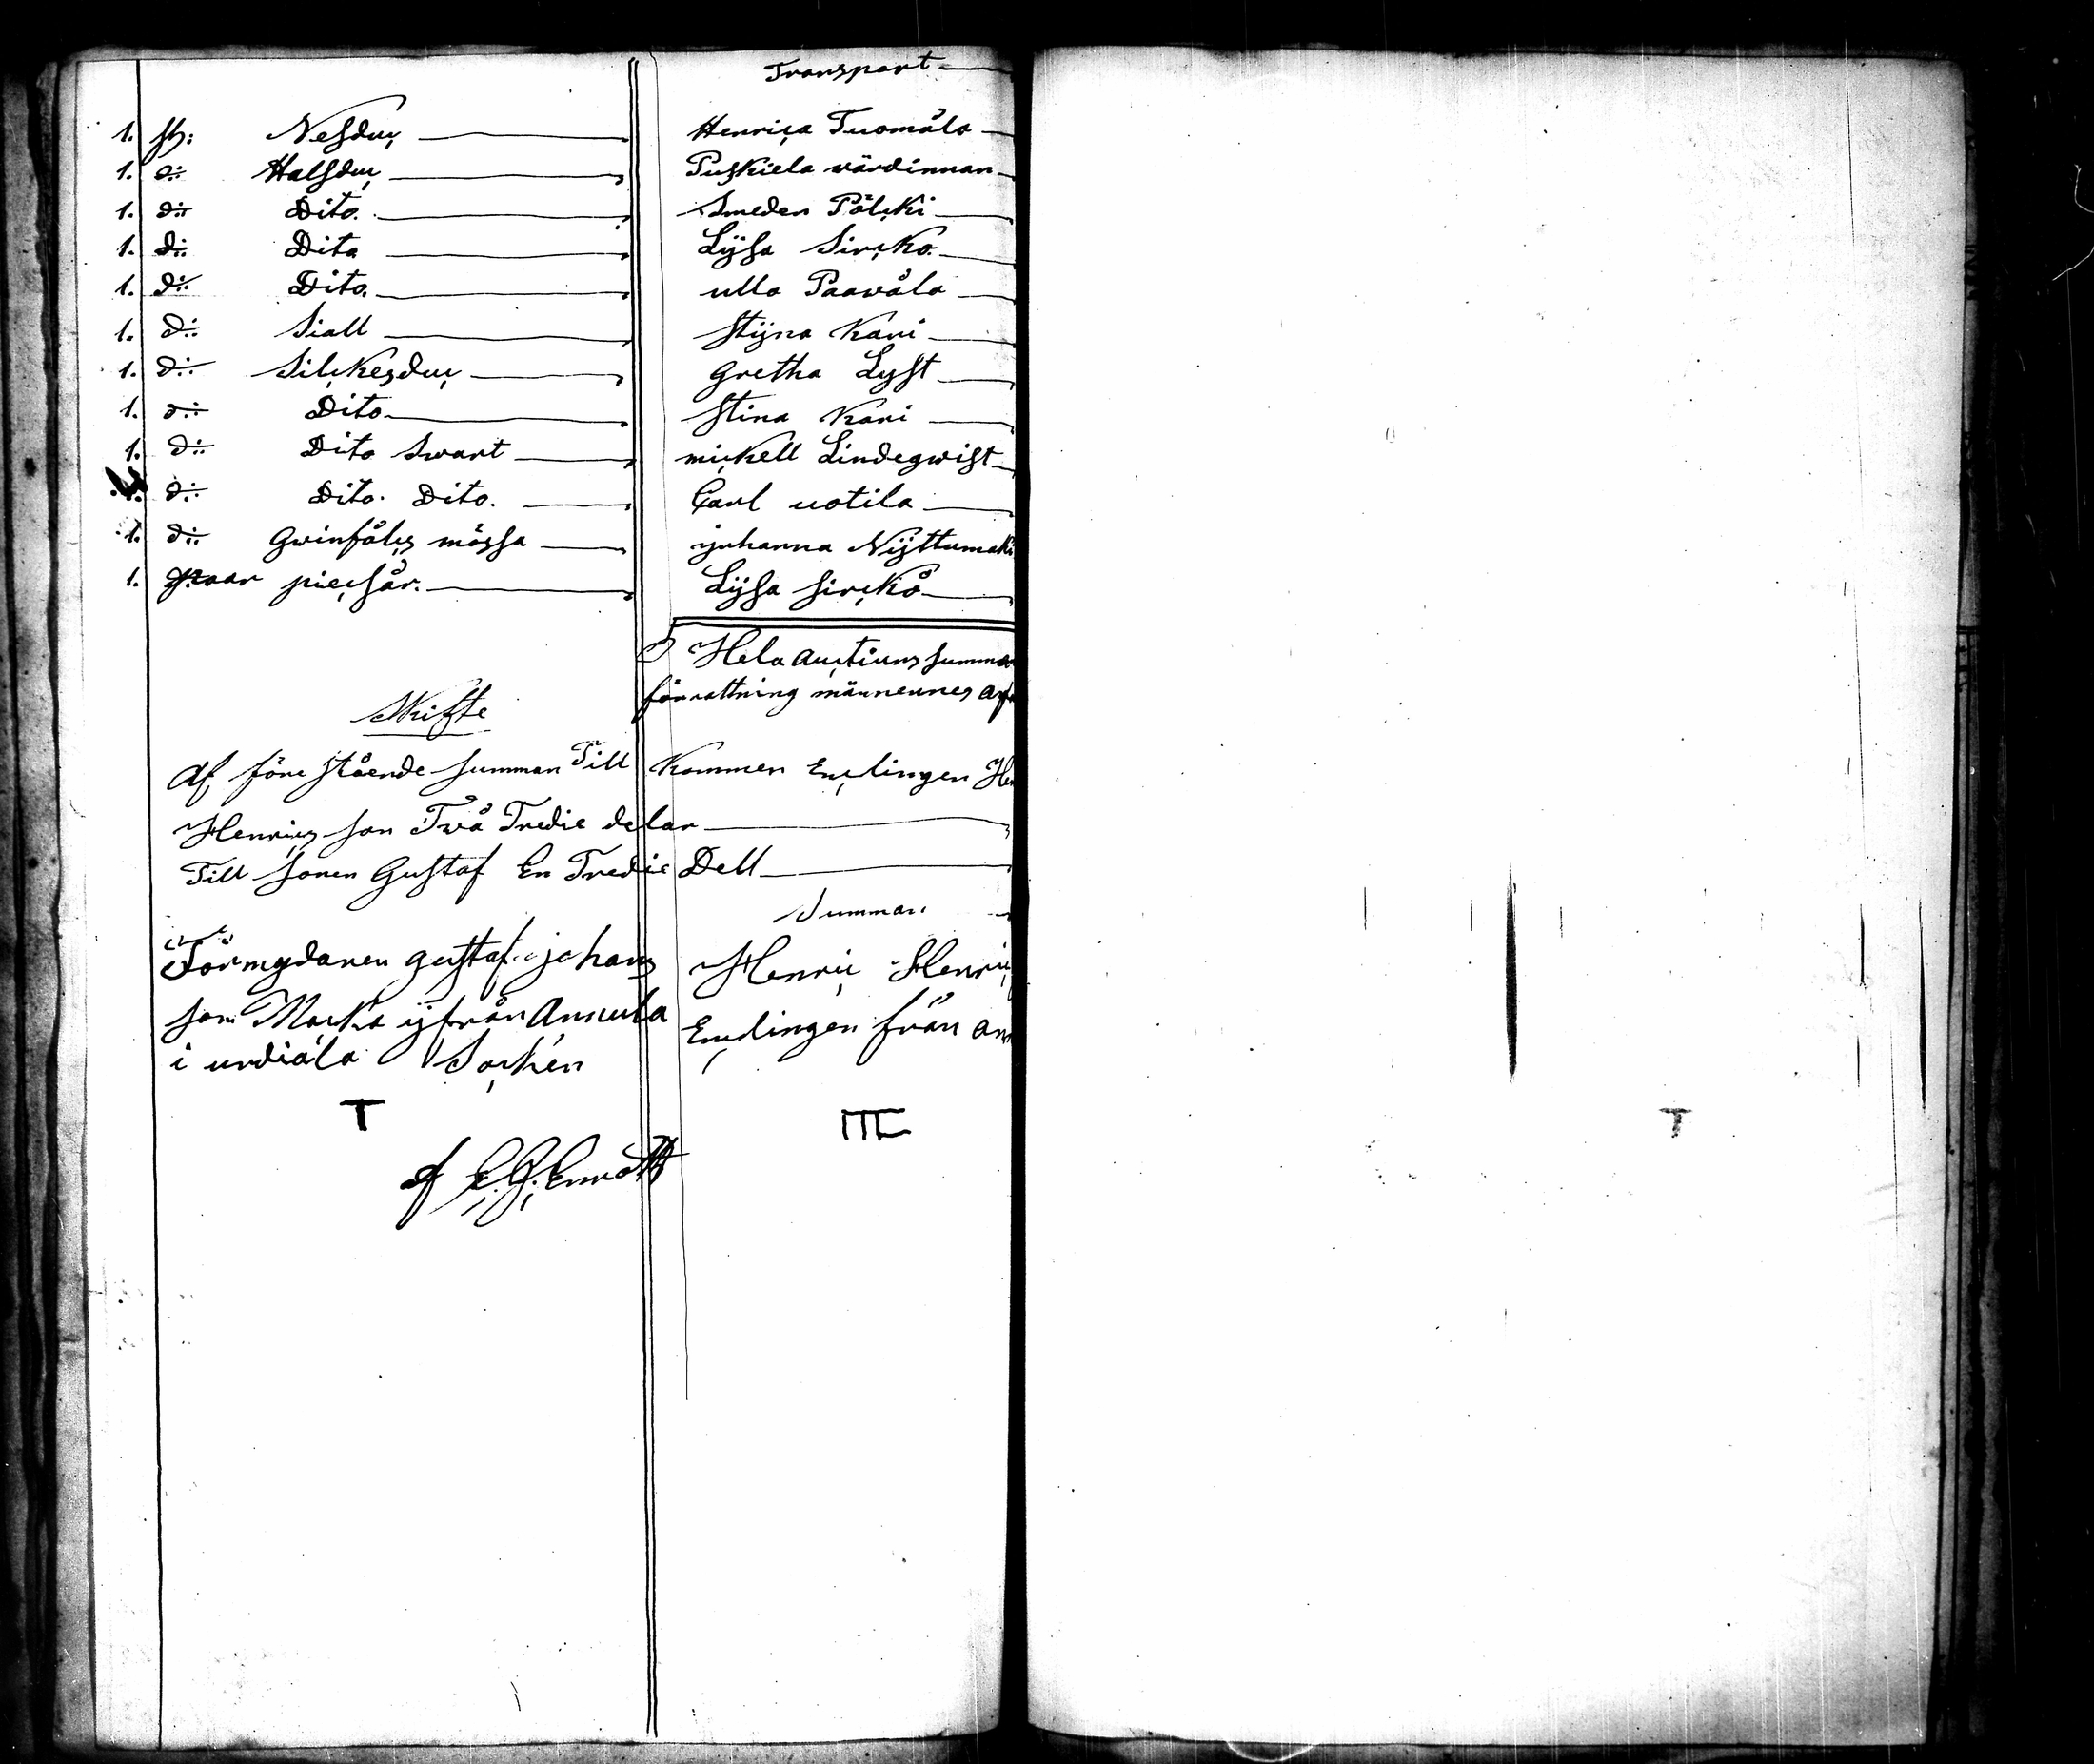 Transport
1. st: Nesduc Henrica Tuomåla
1. di: Halsduc Puskiela wärdinnan
1. di: Dito. Smeden Pölcki
1. di: Dito Lijsa Sircko
1. di: Dito. ulla Paawåla
1. di: Siall Stijna Kari
1. di: Silckesduc Gretha Lyst
1. di: Dito Stina Kari
1. di: Dito Swart mickell Lindegwist
1. di: Dito. Dito. Carl uotila
1. di: Gwinfålcs mössa juhanna Nijttumaki
1. paar piecsår. Lijsa Sircko
Hela auctiuns summan
förrattning männernes
Skifte
Af före stående summan Till Kommer Enclingen
Henrics son Två Tredie delar
Till Sonen Gustaf En Tredie Dell
Summan
Förmydaren gustaf johans Henric Henric
son Marka ijfrån Annula Enclingen från
i urdiala Sockén
T
af